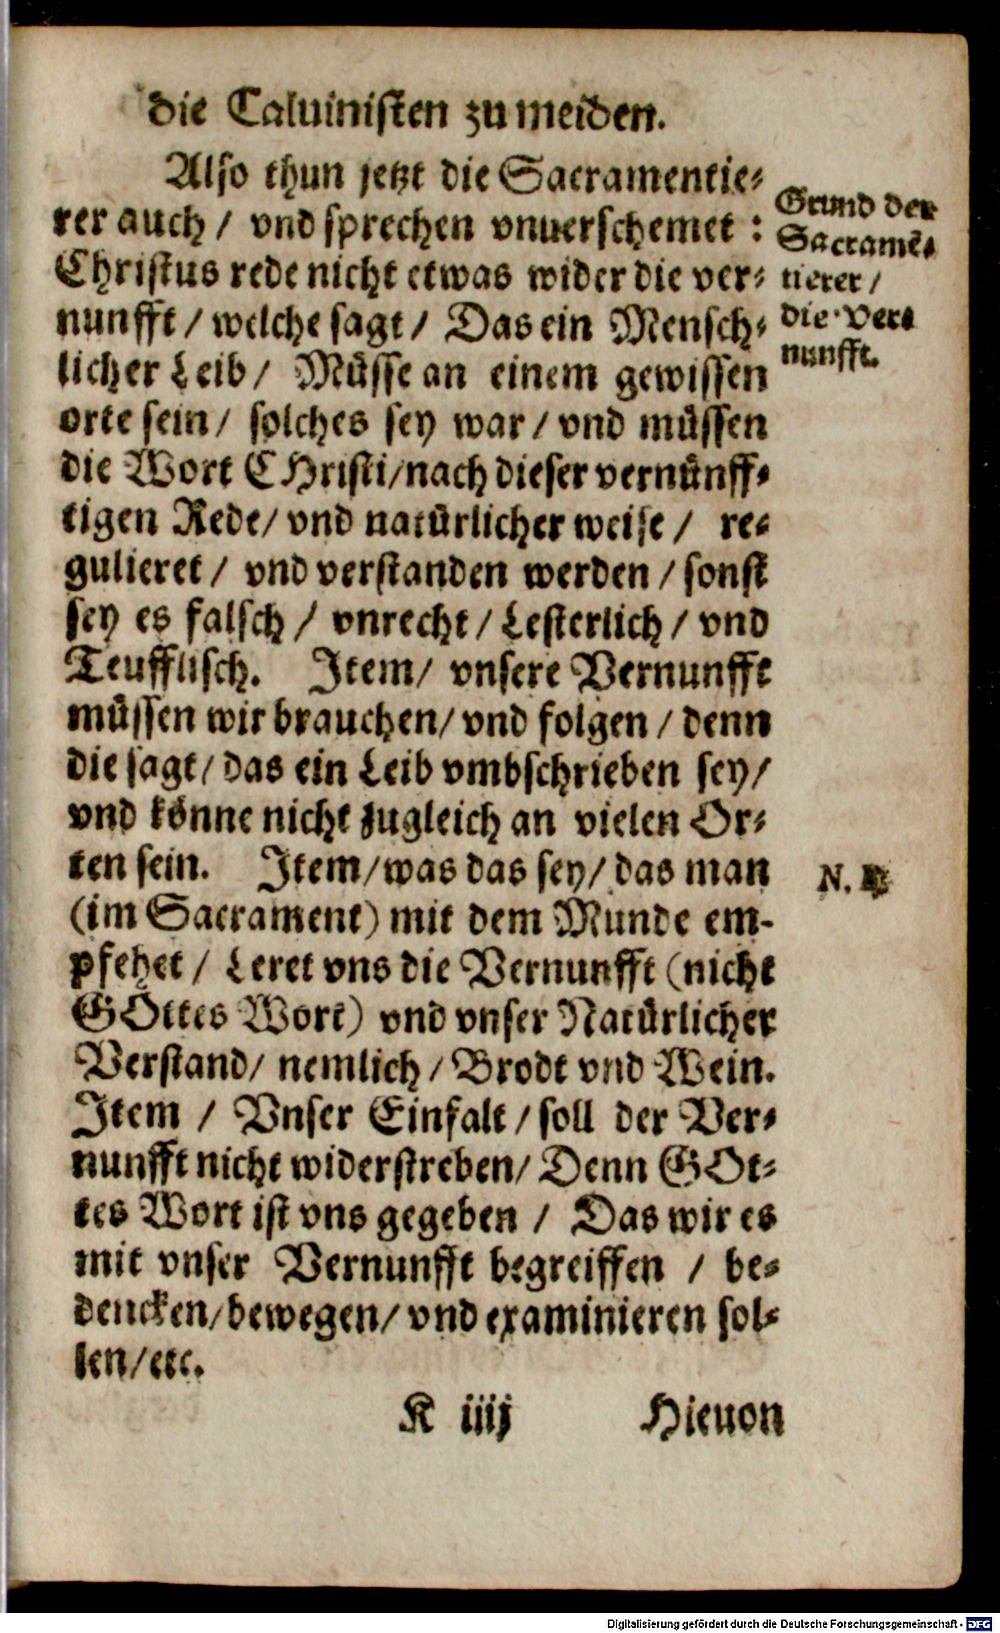 die Caluinisten zu meiden.
Also thun jetzt die Sacramentie-
rer auch / vnd sprechen vnuerschemet :
Christus rede nicht etwas wider die ver-
nunfft / welche sagt / Das ein Mensch-
licher Leib / Müsse an einem gewissen
orte sein / solches sey war / vnd müssen
die Wort CHristi / nach dieser vernünff-
tigen Rede / vnd natürlicher weise / re-
gulieret / vnd verstanden werden / sonst
sey es falsch / vnrecht / Lesterlich / vnd
Teufflisch. Item / vnsere Vernunfft
müssen wir brauchen / vnd folgen / denn
die sagt / das ein Leib vmbschrieben sey /
vnd könne nicht zugleich an vielen Or-
ten sein. Item / was das sey / das man
(im Sacrament) mit dem Munde em-
pfehet / Leret vns die Vernunfft (nicht
GOttes Wort) vnd vnser Natürlicher
Verstand / nemlich / Brodt vnd Wein.
Item / Vnser Einfalt / soll der Ver-
nunfft nicht widerstreben / Denn GOt-
tes Wort ist vns gegeben / Das wir es
mit vnser Vernunfft begreiffen / be-
dencken / bewegen / vnd examinieren sol-
len / etc.
Grund der
Sacramē-
tierer /
die Ver-
nunfft.
N.
K iiij Hieuon
Digitalisierung gefördert durch die Deutsche Forschungsgemeinschaft - DFG